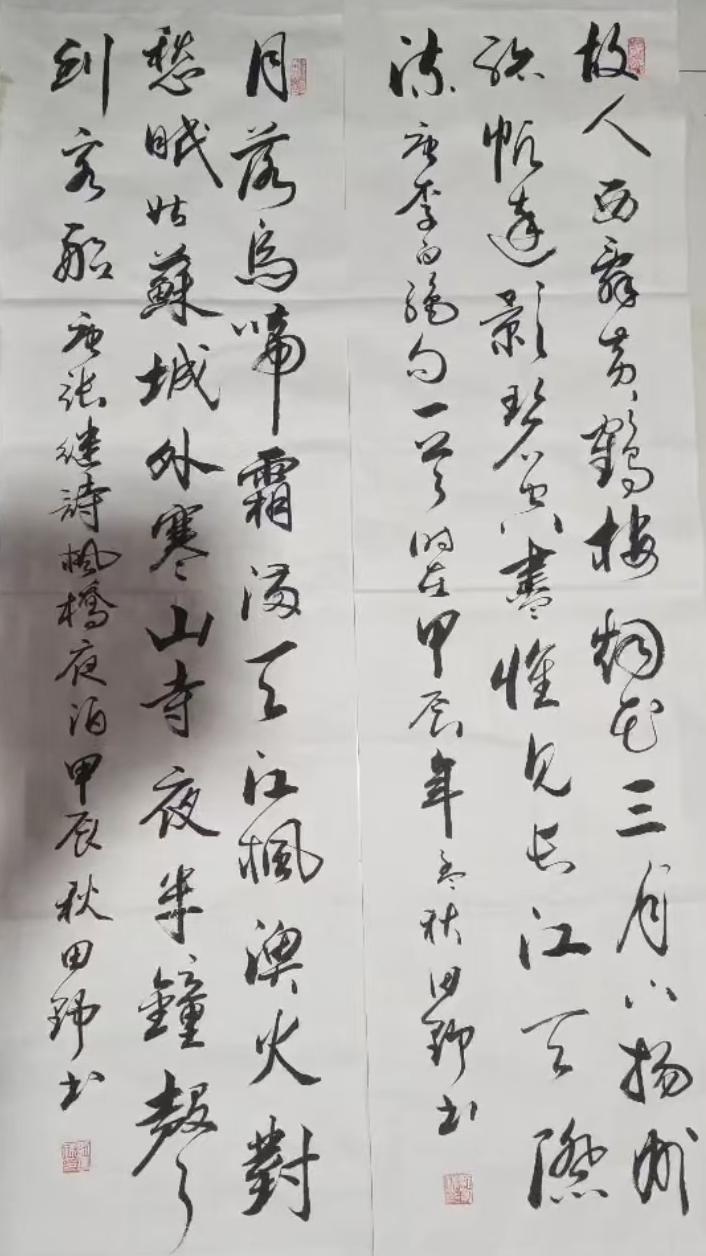 故人西辭黃鶴樓烟花三月下揚州
孤帆遠影碧空盡惟見長江天際
流唐李白絕句一首時在甲辰年孟秋田野书
月落烏啼霜滿天江楓漁火對
愁眠姑蘇城外寒山寺夜半鐘聲
到客船唐張繼詩楓橋夜泊甲辰秋田野书